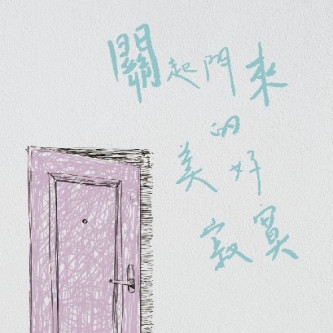 關起門來
的
美好
寂寞